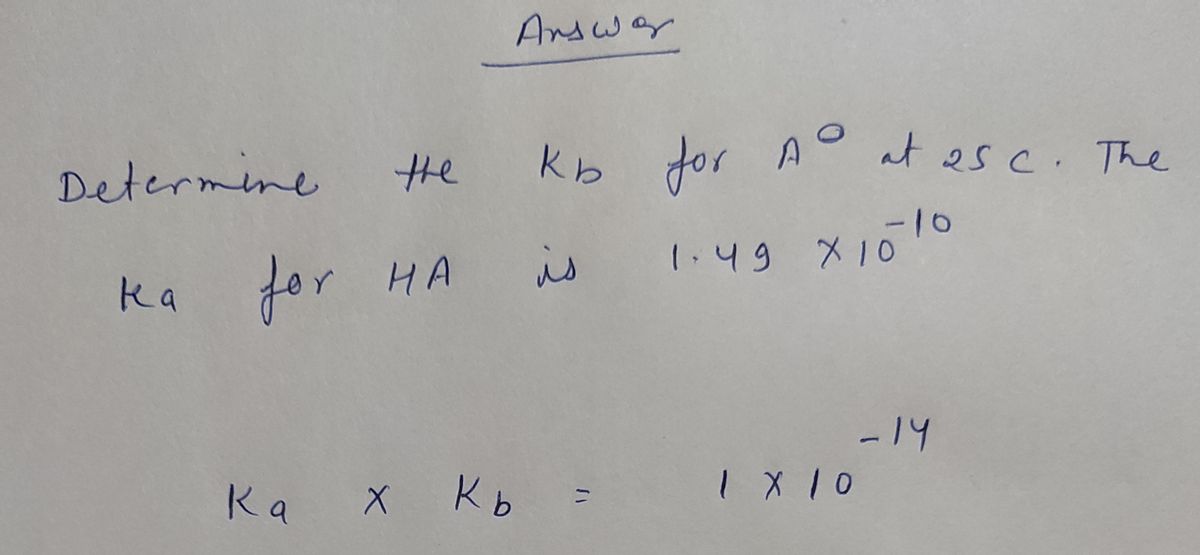 Answer
Determine the Kb for A⁰ at 25 C. The
Ka for HA is 1.49 × 10⁻¹⁰
Ka × Kb = 1 × 10⁻¹⁴